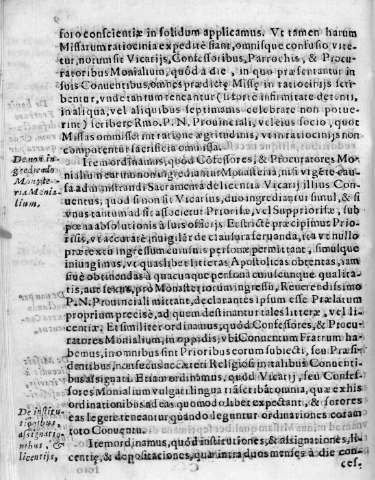 foro conscientiæ in solidum applicamus. Vt tamen harum
Missarum ratiocinia expeditè fiant, omnisque confusio vite-
tur, notum sit Vicarijs, Confessoribus, Parrochis, & Procu-
ratoribus Monialium, quòd à die, in quo præsentantur in
suis Conuentibus, omnes prædictæ Missæ in ratiocinijs scri-
bentur, vnde tantum teneantur (si sortè infirmitate detenti,
in aliqua, vel aliquibus septimanis celebrare non potue-
rint) scribere Rmo. P. N. Prouinciali, veleius socio, quot
Missas omisserint ratione ægritudinis, vt in ratiocinijs non
computentur sacrificia omissa.
De non in-
grediendo
Monaste-
ria Monia-
lium,
Item ordinamus, quòd Cõfessores, & Procuratores Mo-
nialium earum non ingrediantur Monasteria, nisi vrgẽte cau-
sa administrandi Sacramenta de licentia Vicarij illius Con-
uentus, quod si non sit Vicarius, duo ingrediantur simul, & si
vnus tantum adsit associetur Priorissæ, vel Suppriorissæ, sub
pœna absolutionis à suis officijs. Et strictè præcipimus Prio-
rissis, vt accuratè inuigilẽt de clausura seruanda, ita vt nullo
prætextu ingressum cuiusuis personæ permittant, simulque
iniungimus, vt quaslibet litteras Apostolicas obtentas, iam
siuè obtinendas à quacunque persona cuiuscunque qualita-
tis, aut sexus, pro Monasteriorum ingressu, Reuerendissimo
P. N. Prouinciali mittant, declarantes ipsum esse Prælatum
proprium precisè, ad quem destinantur tales litteræ, vel li-
centiæ, Et similiter ordinamus, quòd Confessores, & Procu-
ratores Monialium, in oppidis, vbi Conuentum Fratrum ha-
bemus, in omnibus sint Prioribus eorum subiecti, seu Præsi-
dentibus, non secus ac cæteri Religiosi in talibus Conuenti-
bus assignati. Etiam ordinamus, quòd Vicarij, seu Confes-
sores Monialium vulgari lingua trãscribãt omnia, quæ ex his
ordinationibus ad eas quomodolibet expectant, & sorores
eas legere teneantur quando leguntur ordinationes coram
toto Conuentu.
De institu-
tionibus,
assignatio-
nibus, &
licentijs,
Item ordinamus, quòd institutiones, & assignationes, li-
centiæ, & depositationes, quæ intra duos menses à die con-
ces-